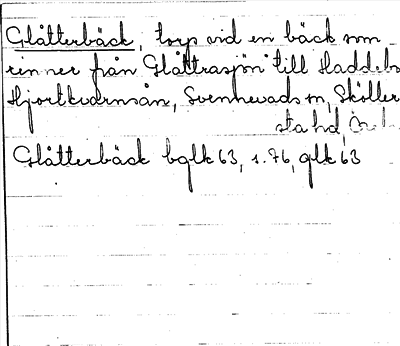 Glåtterbäck, torp vid en bäck som
rinner från Glåttrasjön till Haddebo
Hjortkvarnsån, Svennevads sn, Sköller
sta hd
Glåtterbäck bglk 63, s. 76, glk 63